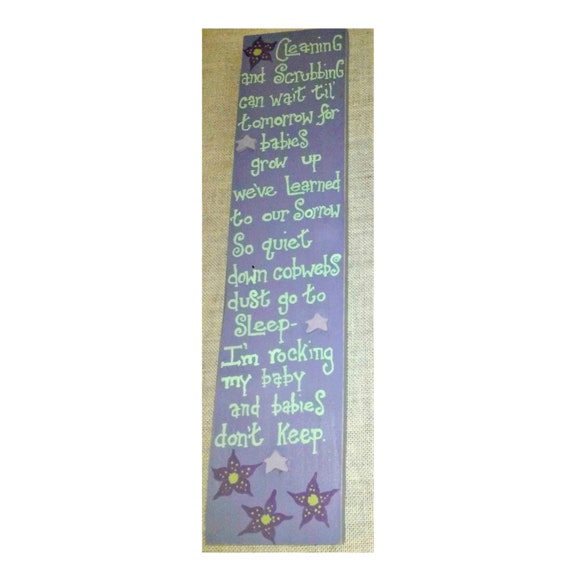 Cleaning
and Scrubbing
can wait til'
tomorrow for
babies
grow up
we've Learned
to our Sorrow
So quiet
down cobwebs
dust go to
SLeep-
I'm rocking
my baby
and babies
don't Keep.